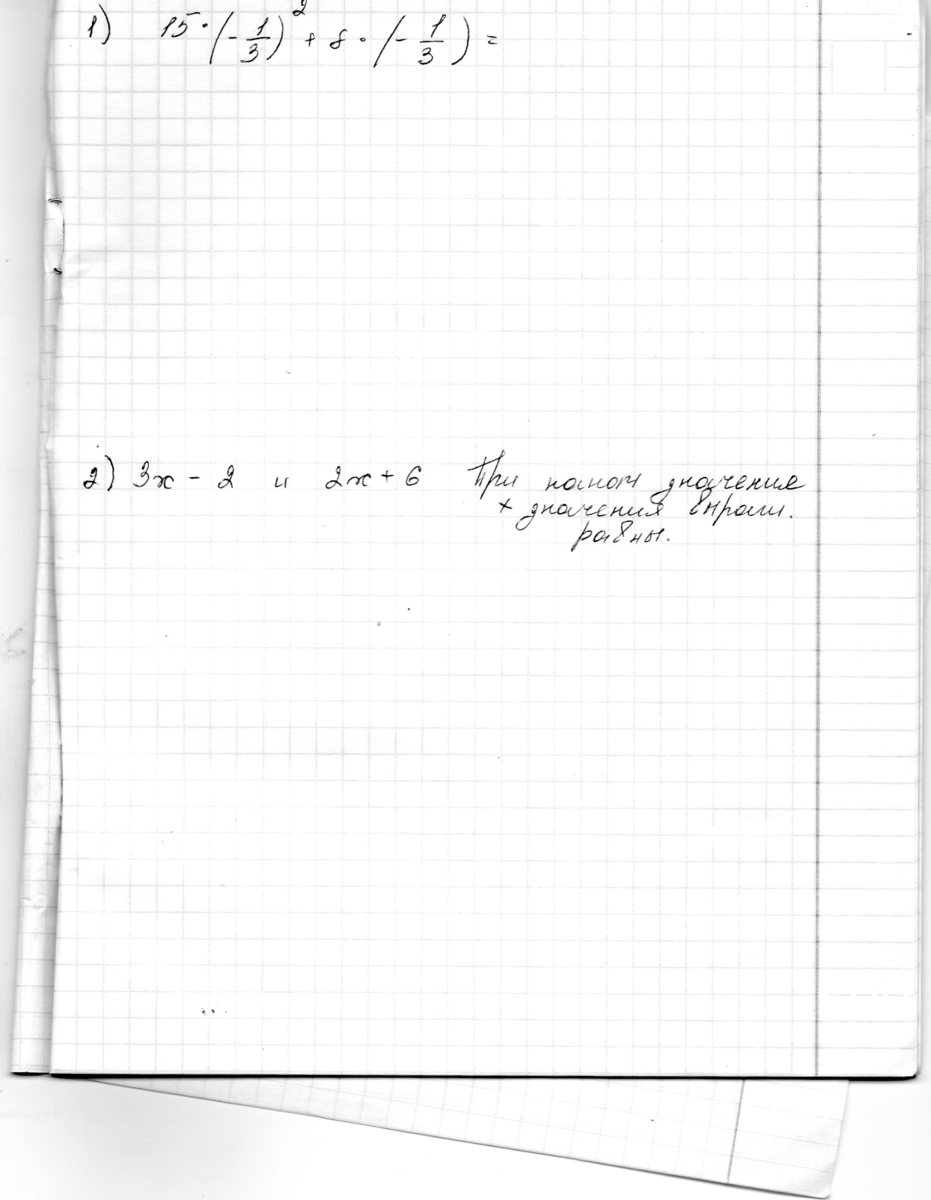 1) 15·(-1/3)² + 8·(-1/3) =
2) 3x - 2 и 2x + 6 При каком значение
x значения выраж.
равны.